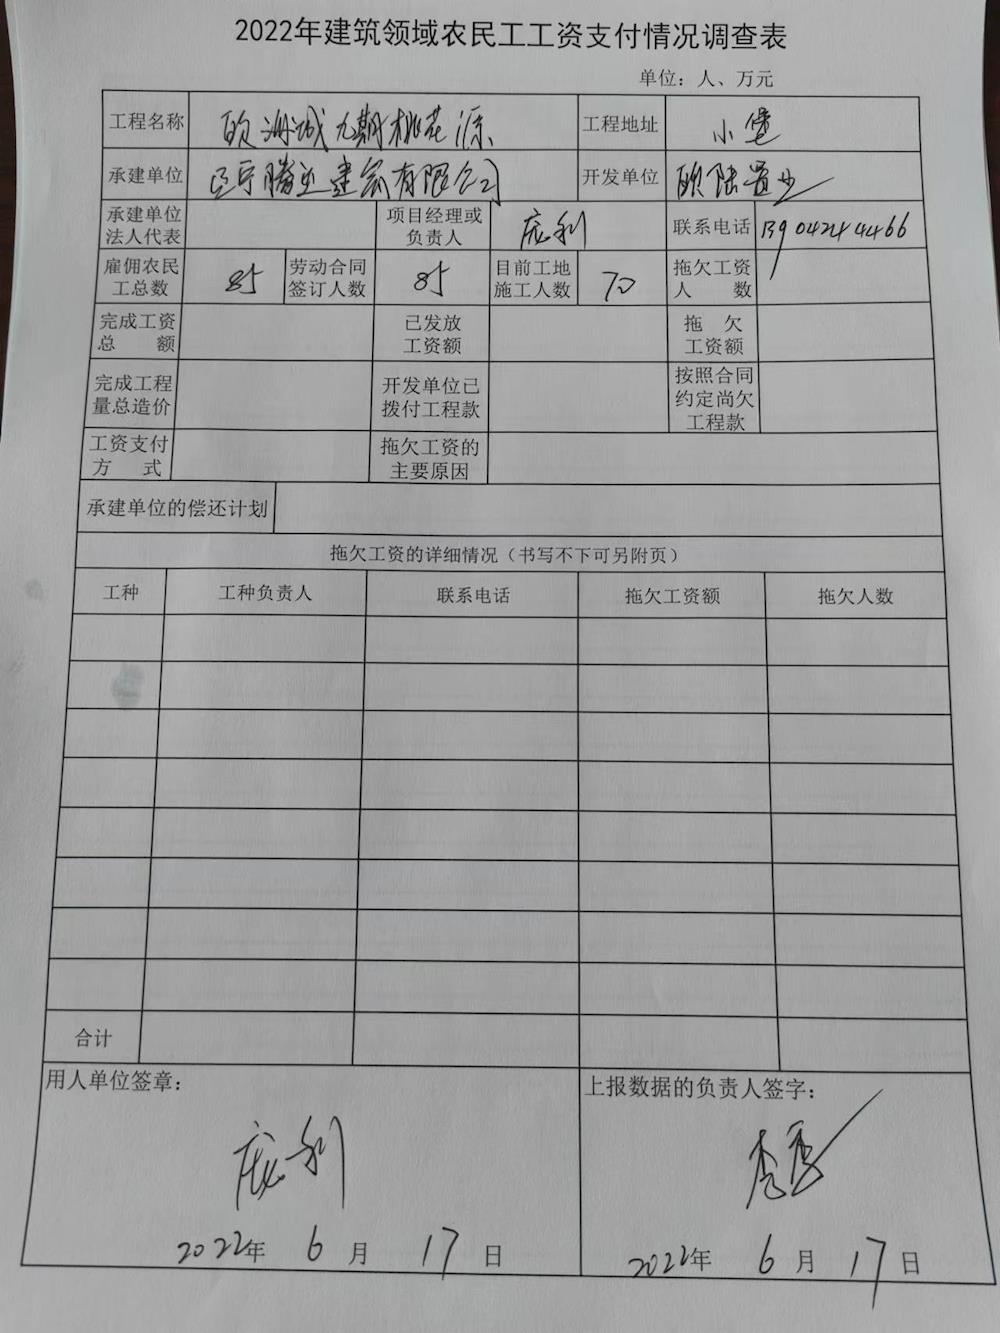 2022年建筑领域农民工工资支付情况调查表
单位：人、万元
工程名称 欧洲城九期桃花源 工程地址 小堡
承建单位 辽宁腾业建筑有限公司 开发单位 欧陆置业
承建单位法人代表 项目经理或负责人 庞利 联系电话 13904244466
雇佣农民工总数 85 劳动合同签订人数 85 目前工地施工人数 70 拖欠工资人数
完成工资总额 已发放工资额 拖欠工资额
完成工程量总造价 开发单位已拨付工程款 按照合同约定尚欠工程款
工资支付方式 拖欠工资的主要原因
承建单位的偿还计划
拖欠工资的详细情况（书写不下可另附页）
工种 工种负责人 联系电话 拖欠工资额 拖欠人数
合计
用人单位签章： 上报数据的负责人签字：
庞利
2022年 6 月 17 日 2022年 6 月 17 日